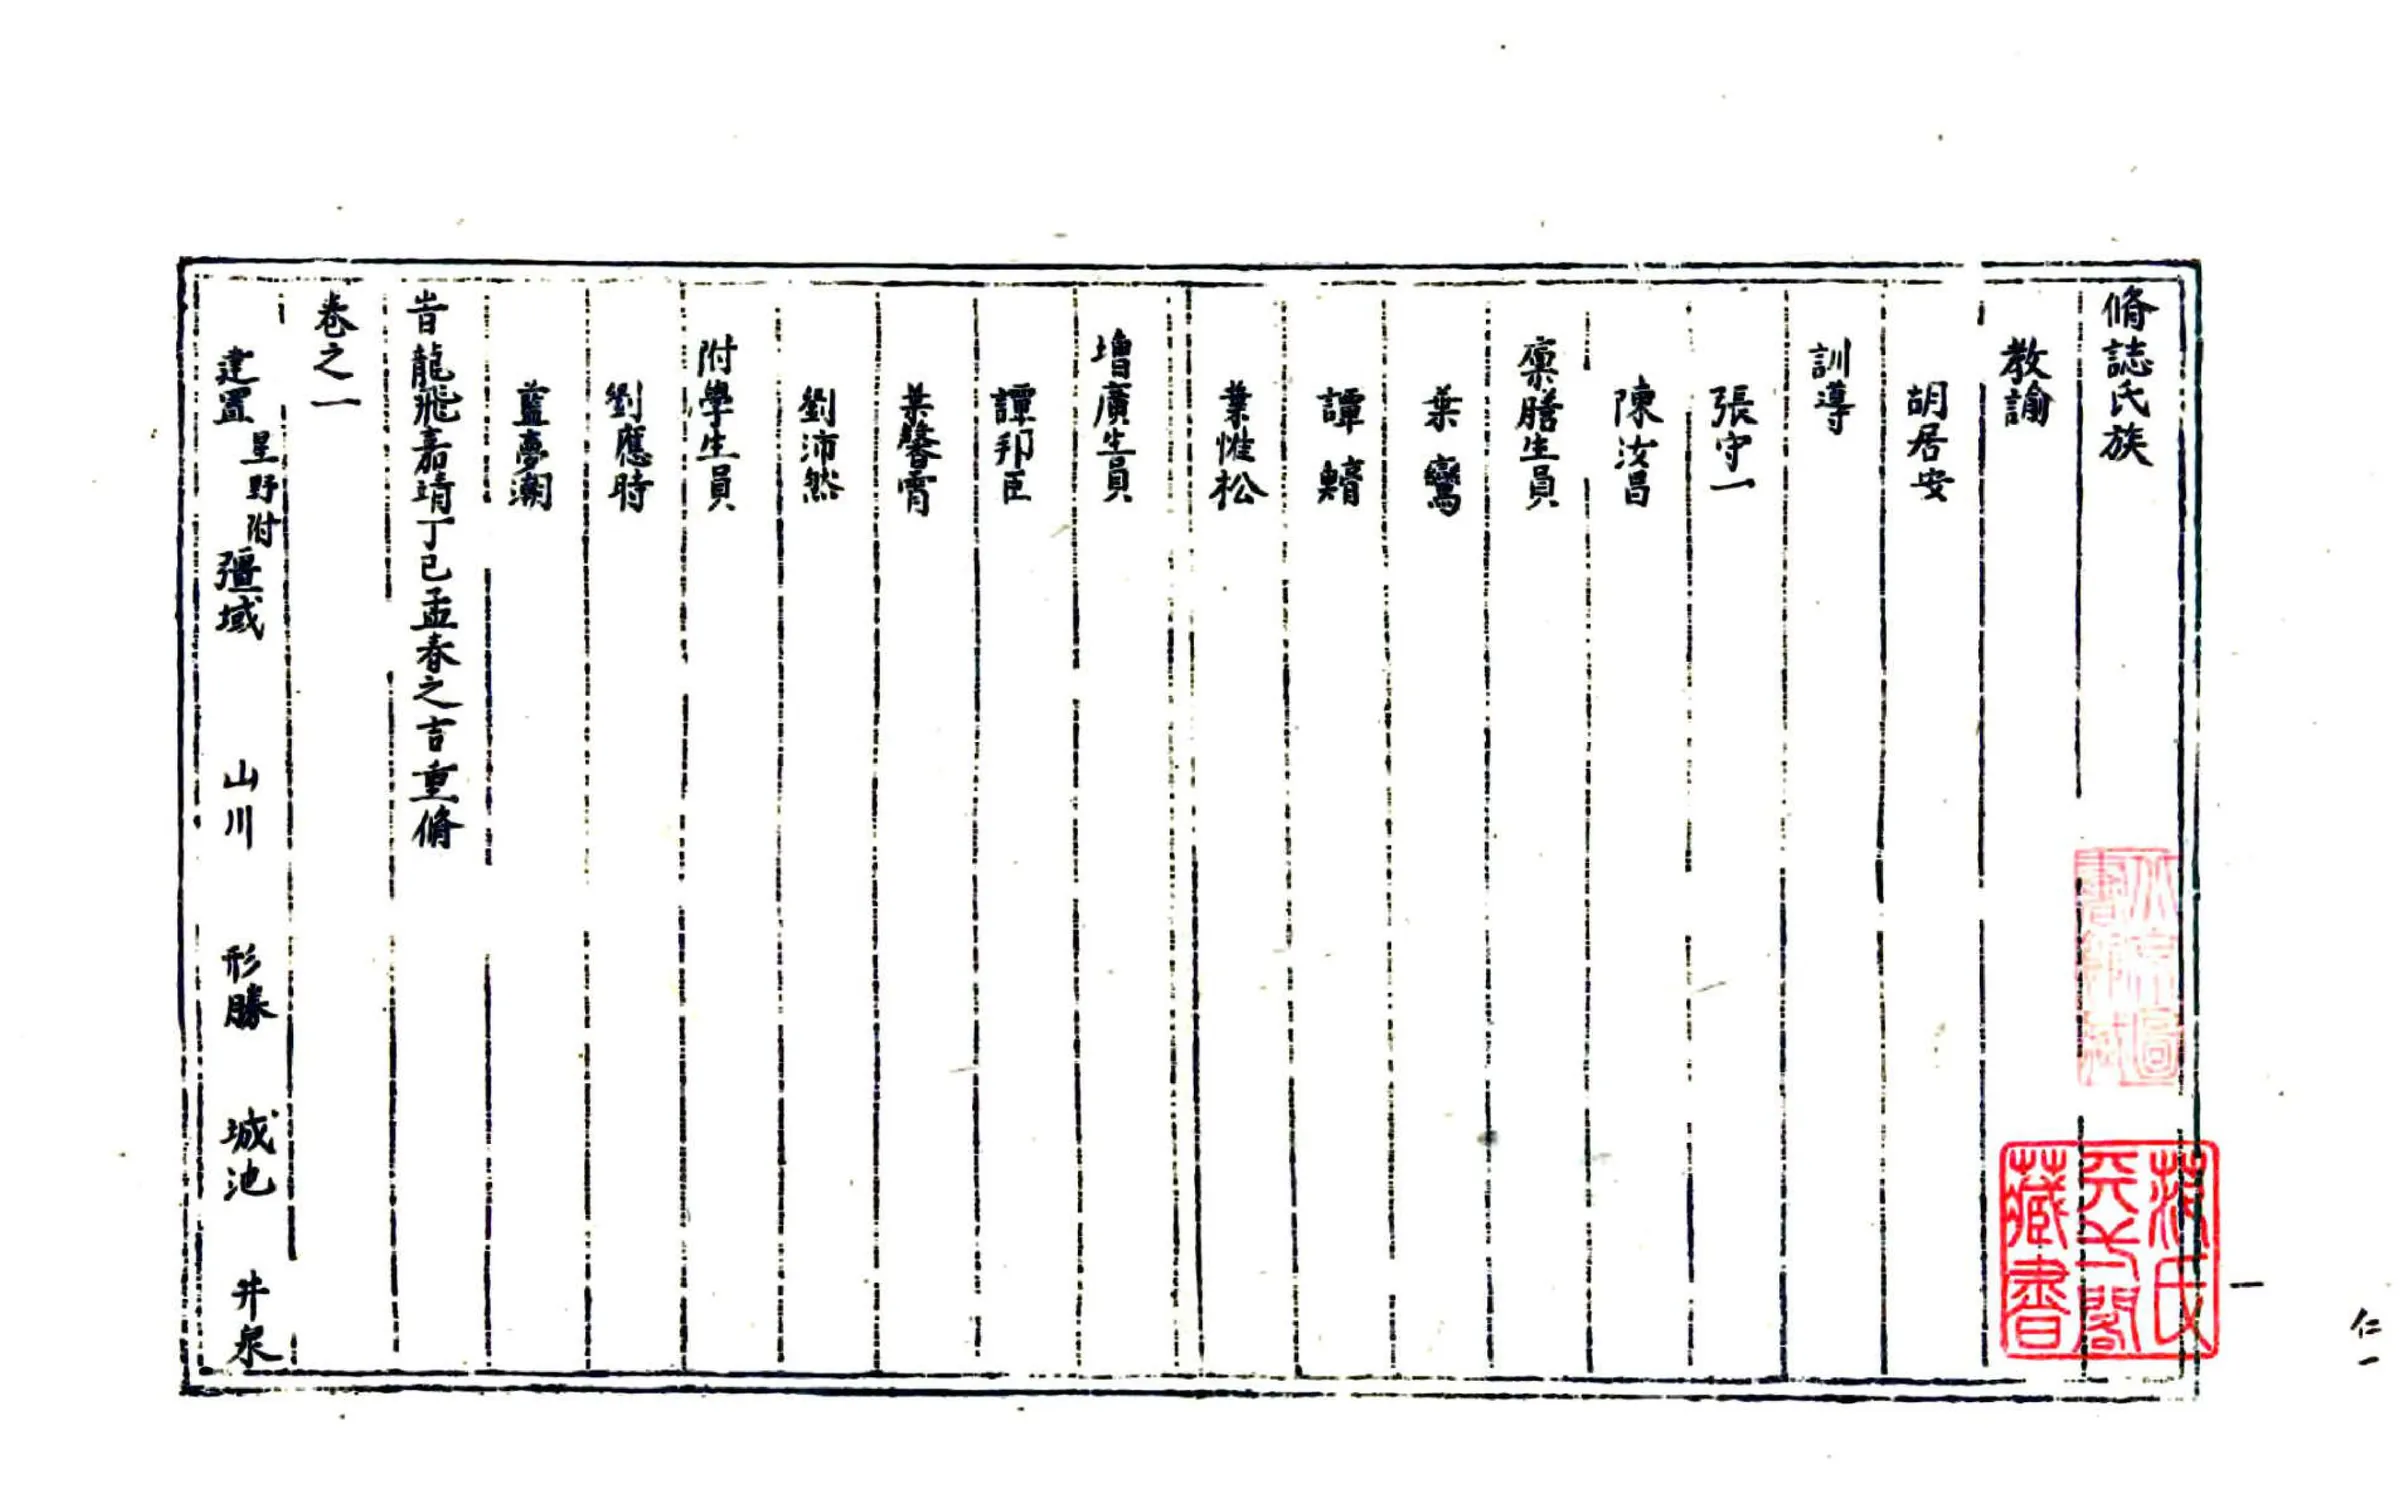 脩誌氏族
教諭
胡居安
訓導
張守一
陳汝昌
廩膳生員
葉鸞
譚
葉惟松
增廣生員
譚邦臣
葉馨霄
劉沛然
附學生員
劉應時
藍夢潮
旹龍飛嘉靖丁巳孟春之吉重脩
卷之一
建置 星野附 疆域 山川 形勝 城池 井泉
范氏天一閣藏書
一
仁一